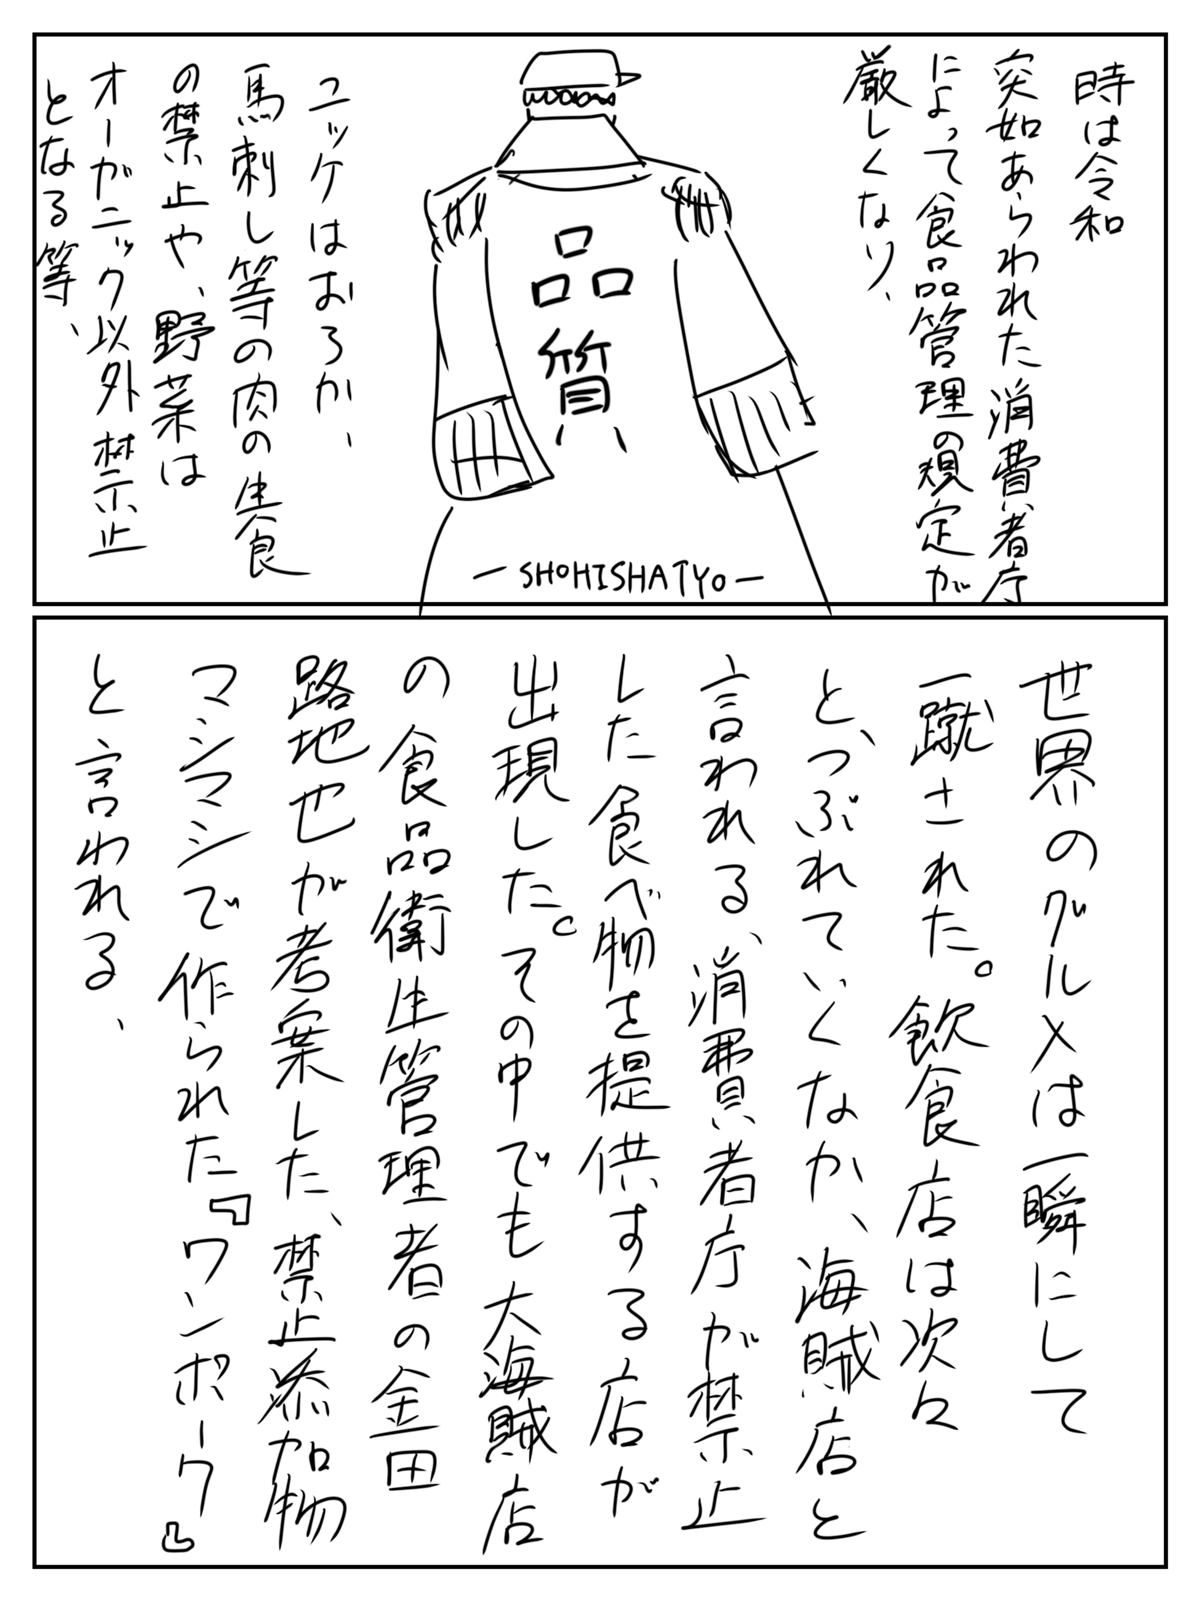 時は令和
突如あらわれた消費者庁
によって食品管理の規定が
厳しくなり、
品質
ーSHOHISHATYOー
ユッケはおろか、
馬刺し等の肉の生食
の禁止や、野菜は
オーガニック以外禁止
となる等、
世界のグルメは一瞬にして
一蹴された。飲食店は次々
と、つぶれていくなか、海賊店と
言われる、消費者庁が禁止
した食べ物を提供する店が
出現した。その中でも大海賊店
の食品衛生管理者の金田
路地也が考案した、禁止添加物
マシマシで作られた『ワンポーク』
と言われる、